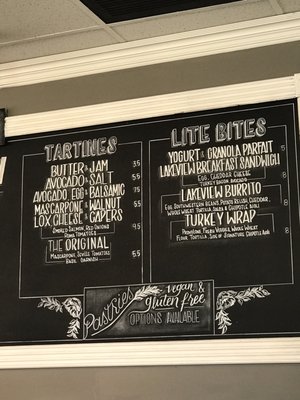 TARTINES
BUTTER & JAM 3.5
AVOCADO & SALT 5.5
AVOCADO, EGG & BALSAMIC 7.5
MASCARPONE & WALNUT
LOX CHEESE & CAPERS
SMOKED SALMON, RED ONIONS,
ROMA TOMATOES
THE ORIGINAL
MASCARPONE, TOMATOES
BASIL GARNISH
LITE BITES
YOGURT & GRANOLA PARFAIT 5
LAKEVIEW BREAKFAST SANDWICH
EGG, CHEDDAR CHEESE
TURKEY BACON, AVOCADO
LAKEVIEW BURRITO 8
EGG, SOUTHWESTERN BEANS, ROASTED CHEDDAR,
WHOLE WHEAT TORTILLA, SIDE OF CHIPOTLE AIOLI
TURKEY WRAP 8
PROVOLONE, FRESH VEGGIES, WHOLE WHEAT
FLOUR TORTILLA, SIDE OF CHIPOTLE AIOLI
Pastries
Vegan &
Gluten Free
OPTIONS AVAILABLE